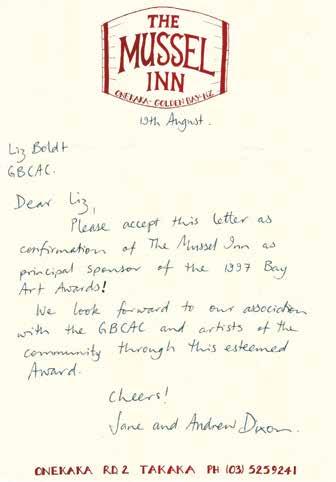 THE
MUSSEL
INN
ONEKAKA - GOLDEN BAY - NZ
19th August.
Liz Boldt
GBCAC.
Dear Liz,
Please accept this letter as
confirmation of The Mussel Inn as
principal sponsor of the 1997 Bay
Art Awards!
We look forward to our association
with the GBCAC and artists of the
community through this esteemed
Award.
Cheers!
Jane and Andrew Dixon.
ONEKAKA RD2 TAKAKA PH (03) 5259241